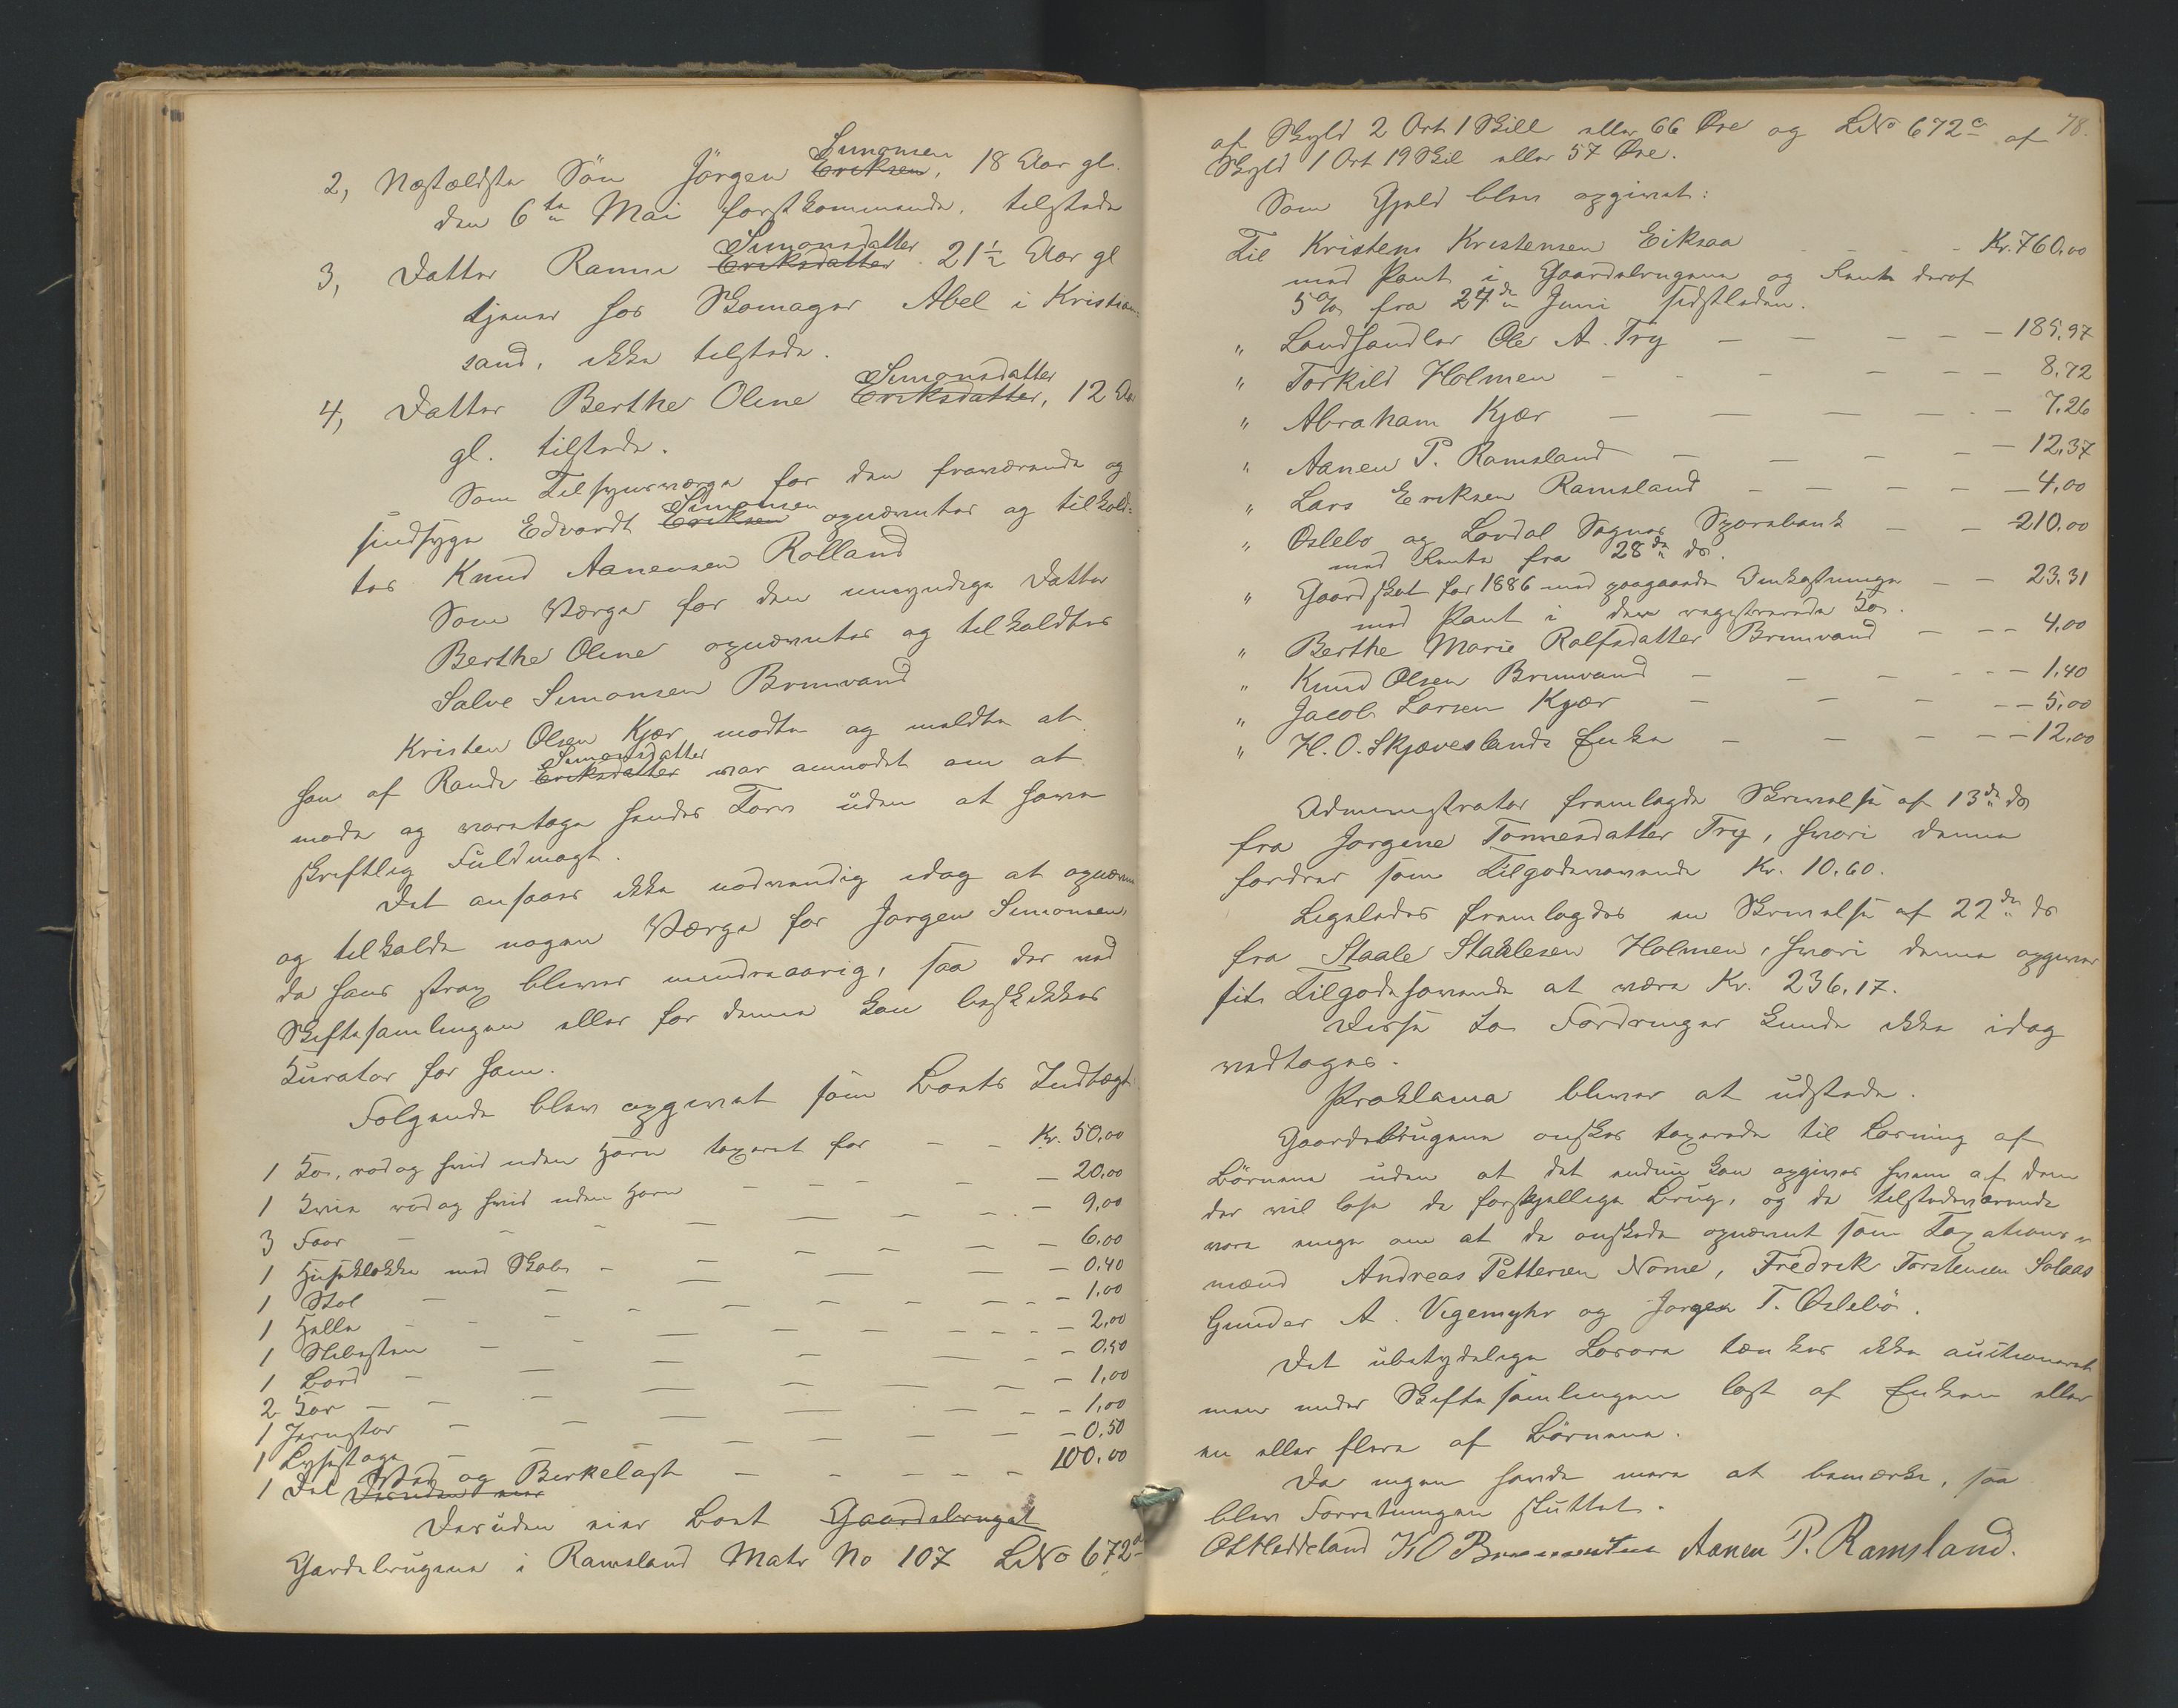 2, Næstældste Sön Jörgen Eriksen Simonsen, 18 Aar gl.
den 6te Mai förstkommende, tilstede
3, Datter Ranna Eriksdatter Simonsdatter 21½ Aar gl
tjener hos Skomager Abel i Kristian-
sand, ikke tilstede.
4, Datter Berthe Oline Eriksdatter Simonsdatter, 12 Aar
gl. tilstede.
Som Tilsynsværge for den fraværende og
sindsyge Edvardt Eriksen Simonsen opnævntes og tilkald-
tes Knud Aanensen Rölland
Som Værge for den umyndige Datter
Berthe Oline opnævntes og tilkaldtes
Salve Simonsen Brunvand
Kristen Olsen Kjær mødte og meldte at
han af Randi Eriksdatter Simonsdatter var anmodet om at
møde og varetage hendes Tarv uden at have
skriftlig Fuldmagt.
Det ansaaes ikke nødvendig idag at opnævne
og tilkalde nogen Værge for Jørgen Simonsen,
da hans strax bliver mindreaarig, saa der ved
Skiftesamlingen eller før denne kan beskikkes
Kurator for ham.
Følgende blev opgivet som Boets Indtægt:
1 Ko, rød og hvid uden Horn taxeret for - - Kr. 50,00
1 Kvie rød og hvid uden Horn - - - - 20,00
3 Faar - - - - 9,00
1 Huseklokke med Skab - - - - 6,00
1 Stol - - - - 0,40
1 Helle - - - - 1,00
1 Slibesten - - - - 2,00
1 Bord - - - - 0,50
2 Kar - - - - 1,00
1 Jerngtar - - - - 1,00
1 Lysestage - - - - 0,50
1 Del Ved og Birkelast - - - - 100,00
Desuden eier
Desuden eier Boet Gaardsbruget
Gardsbrugene i Ramsland Matr No 107 LNo 672a
78.
af Skyld 2 Ort 1 Skill eller 66 Øre og LNo 672c af
Skyld 1 Ort 19 Skil eller 57 Øre.
Som Gjeld blev opgivet:
Til Kristens Kristensen Eiksaa - - - Kr. 760,00
med Pant i Gaardsbrugene og Rente deraf
5 % fra 24de Juni sidstleden.
" Landhandler Ole A. Try - - - - 185,97
" Torkild Holmen - - - - 8,72
" Abraham Kjær - - - - 7,26
" Aanen P. Ramsland - - - - 12,37
" Lars Eriksen Ramsland - - - - 4,00
" Øslebø og Løvdal Sognes Sparebank - - 210,00
med Rente fra 28de ds.
" Gaardskat for 1886 med paagaaende Omkostninger - - 23,31
med Pant i den registrerede Ko.
" Berthe Marie Ralfsdatter Brunvand - - - 4,00
" Knud Olsen Brunvand - - - - 1,40
" Jacob Larsen Kjær - - - - 5,00
" H. O. Skjæveslands Enke - - - - 12,00
Administrator fremlagde Skrivelse af 13de ds
fra Jørgine Tønnesdatter Try, hvori denne
fordrer som Tilgodehavende Kr. 10,60.
Ligeledes fremlagdes en Skrivelse af 22de ds
fra Staale Staalesen Holmen, hvori denne opgiver
sit Tilgodehavende at være Kr. 236,17.
Disse to Fordringer kunde ikke idag
vedtages.
Proklama bliver at udstede.
Gaardsbrugene ønskes taxerede til Løsning af
Börnene uden at det endnu kan opgives hvem af dem
der vil løse de forskjellige Brug, og de tilstedeværende
vare enige om at de ønskede opnævnt som Taxations-
mænd Andreas Pettersen Nome, Fredrik Torstensen Solaas
Gunder A. Vegemyhr og Jørgen T. Øslebö.
Det ubetydelige Løsøre tænkes ikke auktioneret
men under Skiftesamlingen løst af Enken eller
en eller flere af Börnene.
Da ingen havde mere at bemærke, saa
blev Forretningen sluttet.
Aanen P. Ramsland.